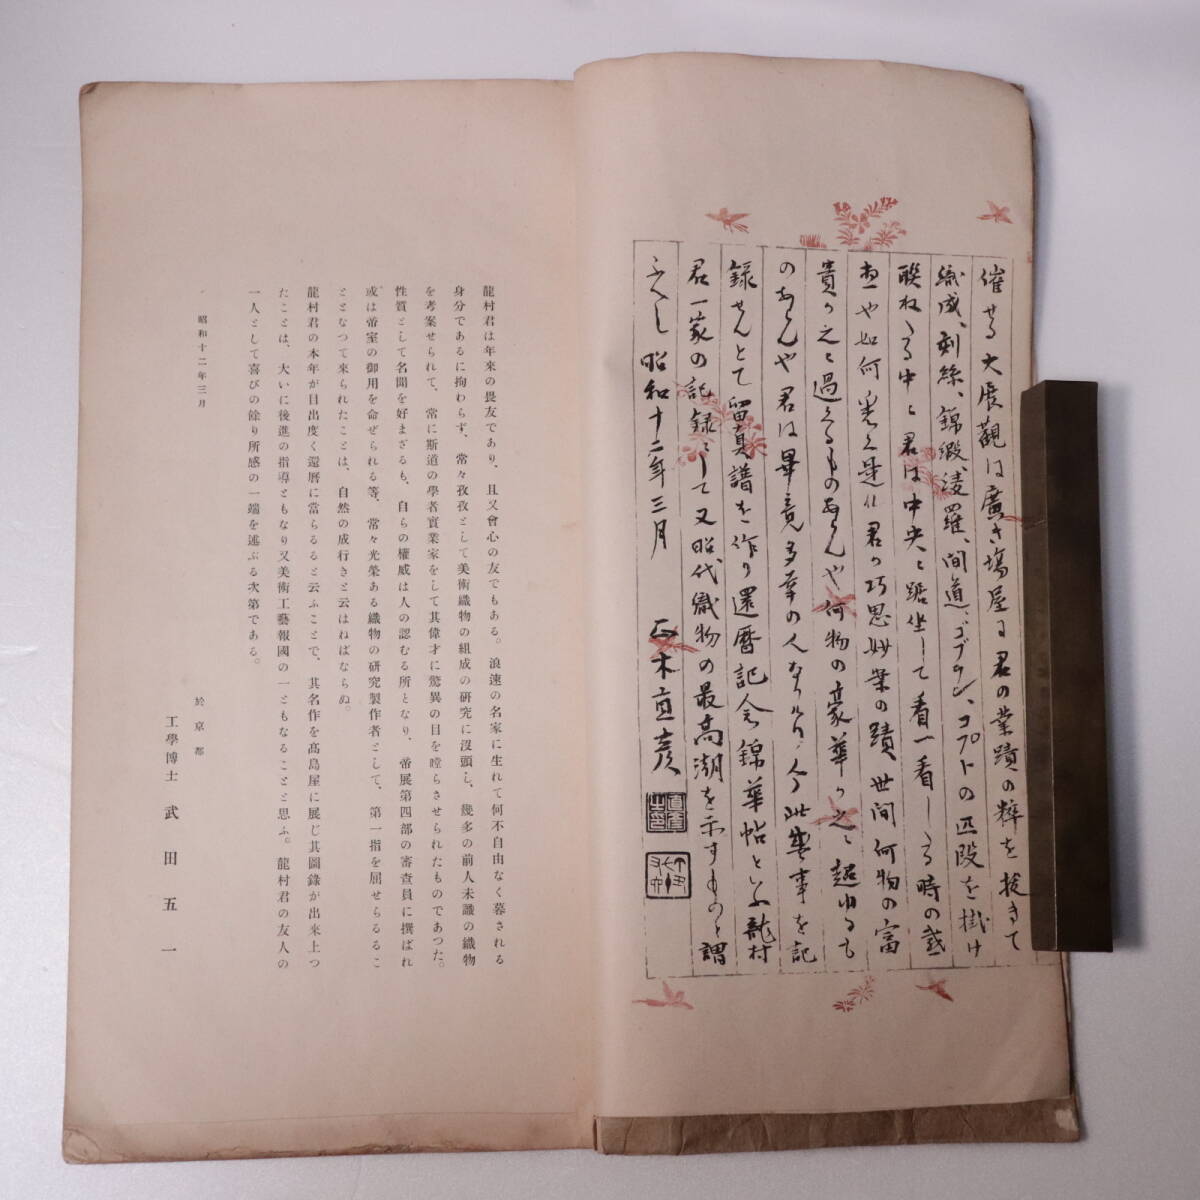 催せる大展觀は廣き塲屋に君の業蹟の粋を拔きて
織成、刺絲、錦緞、淩羅、間道、ゴブラン、コプトの匹段を掛け
聯ねたる中に君は中央に踞坐して看一看したる時の感
想や如何 是れ君の巧思妙案の蹟 世间何物の富
貴か之に過くるものあらんや何物の豪華か之に超ゆるも
のあらんや君は畢竟多幸の人なり 今此盛事を記
録せんとて留真譜を作り還暦記念錦華帖といふ龍村
君一家の記録にして又昭代織物の最高潮を示すものと謂
ふへし 昭和十二年三月 正木直彦
龍村君は年來の畏友であり、且又會心の友でもある。浪速の名家に生れて何不自由なく暮される
身分であるに拘わらず、常々孜孜として美術織物の組成の研究に沒頭し、幾多の前人未識の織物
を考案せられて、常に斯道の學者實業家をして其偉才に驚異の目を瞠らさせられたものであつた。
性質として名聞を好まざるも、自らの權威は人の認むる所となり、帝展第四部の審査員に撰ばれ
或は帝室の御用を命ぜられる等、常々光榮ある織物の研究製作者として、第一指を屈せらるるこ
ととなつて來られたことは、自然の成行きと云はねばならぬ。
龍村君の本年が目出度く還曆に當らるると云ふことで、其名作を髙島屋に展じ其圖錄が出來上つ
たことは、大いに後進の指導ともなり又美術工藝報國の一ともなることと思ふ。龍村君の友人の
一人として喜びの餘り所感の一端を述ぶる次第である。
昭和十二年三月
於京都
工學博士 武田五一